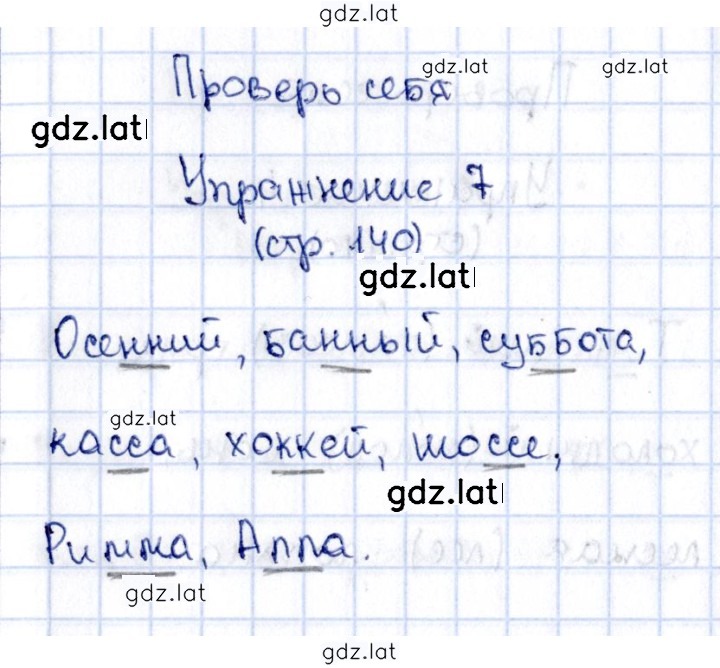 gdz.lat
Проверь себя
gdz.lat
gdz.lat
gdz.lat
Упражнение 7
(стр. 140)
gdz.lat
Осенний, банный, суббота,
gdz.lat
касса, хоккей, шоссе,
gdz.lat
Римма, Алла.
gdz.lat
gdz.lat